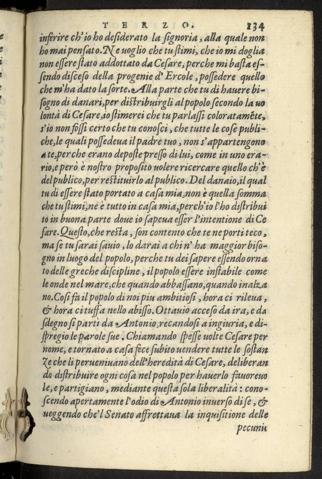 TERZO. 134
inferire ch'io ho desiderato la signoria, alla quale non
ho mai pensato. Ne voglio che tu stimi, che io mi doglia
non essere stato addottato da Cesare, perche mi basta es-
sendo disceso della progenie d'Ercole, possedere quello
che m'ha dato la sorte. Alla parte che tu di hauere bi-
sogno di danari, per distribuirgli al popolo secondo la uo
lontà di Cesare, io stimerei che tu parlassi coloratamẽte,
s'io non fossi certo che tu conosci, che tutte le cose publi-
che, le quali possedeua il padre tuo, non s'appartengono
a te, perche erano deposte presso di lui, come in uno era-
rio, e però è nostro proposito uolere ricercare quello ch'è
del publico, per restituirlo al publico. Del danaio, il qual
tu di essere stato portato a casa mia, non è quella somma
che tu stimi, nè è tutto in casa mia, perch'io l'ho distribui
to in buona parte doue io sapeua esser l'intentione di Ce
sare. Questo, che resta, son contento che te ne porti teco,
ma se tu sarai sauio, lo darai a chi n'ha maggior biso-
gno in luogo del popolo, perche tu dei sapere essendo orna
to delle greche discipline, il popolo essere instabile come
le onde nel mare, che quando abbassano, quando inalza
no. Cosi fà il popolo di noi piu ambitiosi, hora ci rileua,
& hora ci tuffa nello abisso. Ottauio acceso da ira, e da
sdegno si partì da Antonio, recandosi a ingiuria, e di-
spregio le parole sue. Chiamando spesse uolte Cesare per
nome, e tornato a casa fece subito uendere tutte le sostan
ze che li perueniuano dell'heredità di Cesare, deliberan
do distribuire ogni cosa nel popolo per hauerlo fauoreuo
le, e partigiano, mediante questa sola liberalità: cono-
scendo apertamente l'odio di Antonio inuerso di se, &
ueggendo che'l Senato affrettaua la inquisitione delle
pecunie